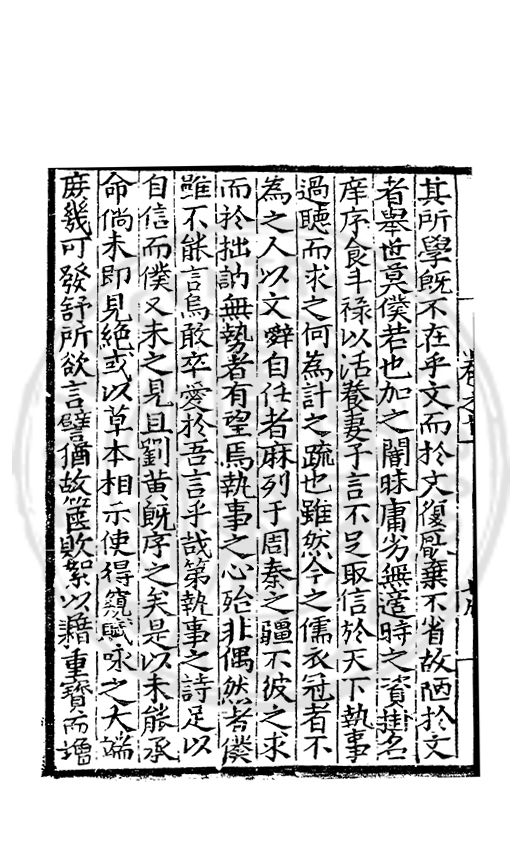 其所學既不在乎文而於文復厭棄不省故陋於文
者舉世莫僕若也加之闇昧庸劣無適時之資掛名
庠序食斗祿以活養妻子言不足取信於天下執事
過聽而求之何為計之疏也雖然今之儒衣冠者不
為之人以文辭自任者麻列于周秦之疆不彼之求
而於拙訥無勢者有望焉執事之心殆非偶然者僕
雖不能言烏敢卒愛於吾言乎哉第執事之詩足以
自信而僕又未之見且劉黃既序之矣是以未能承
命倘未即見絕或以草本相示使得窺賦咏之大端
庻幾可發舒所欲言譬猶故篋敗絮以藉重寶而増
卷之